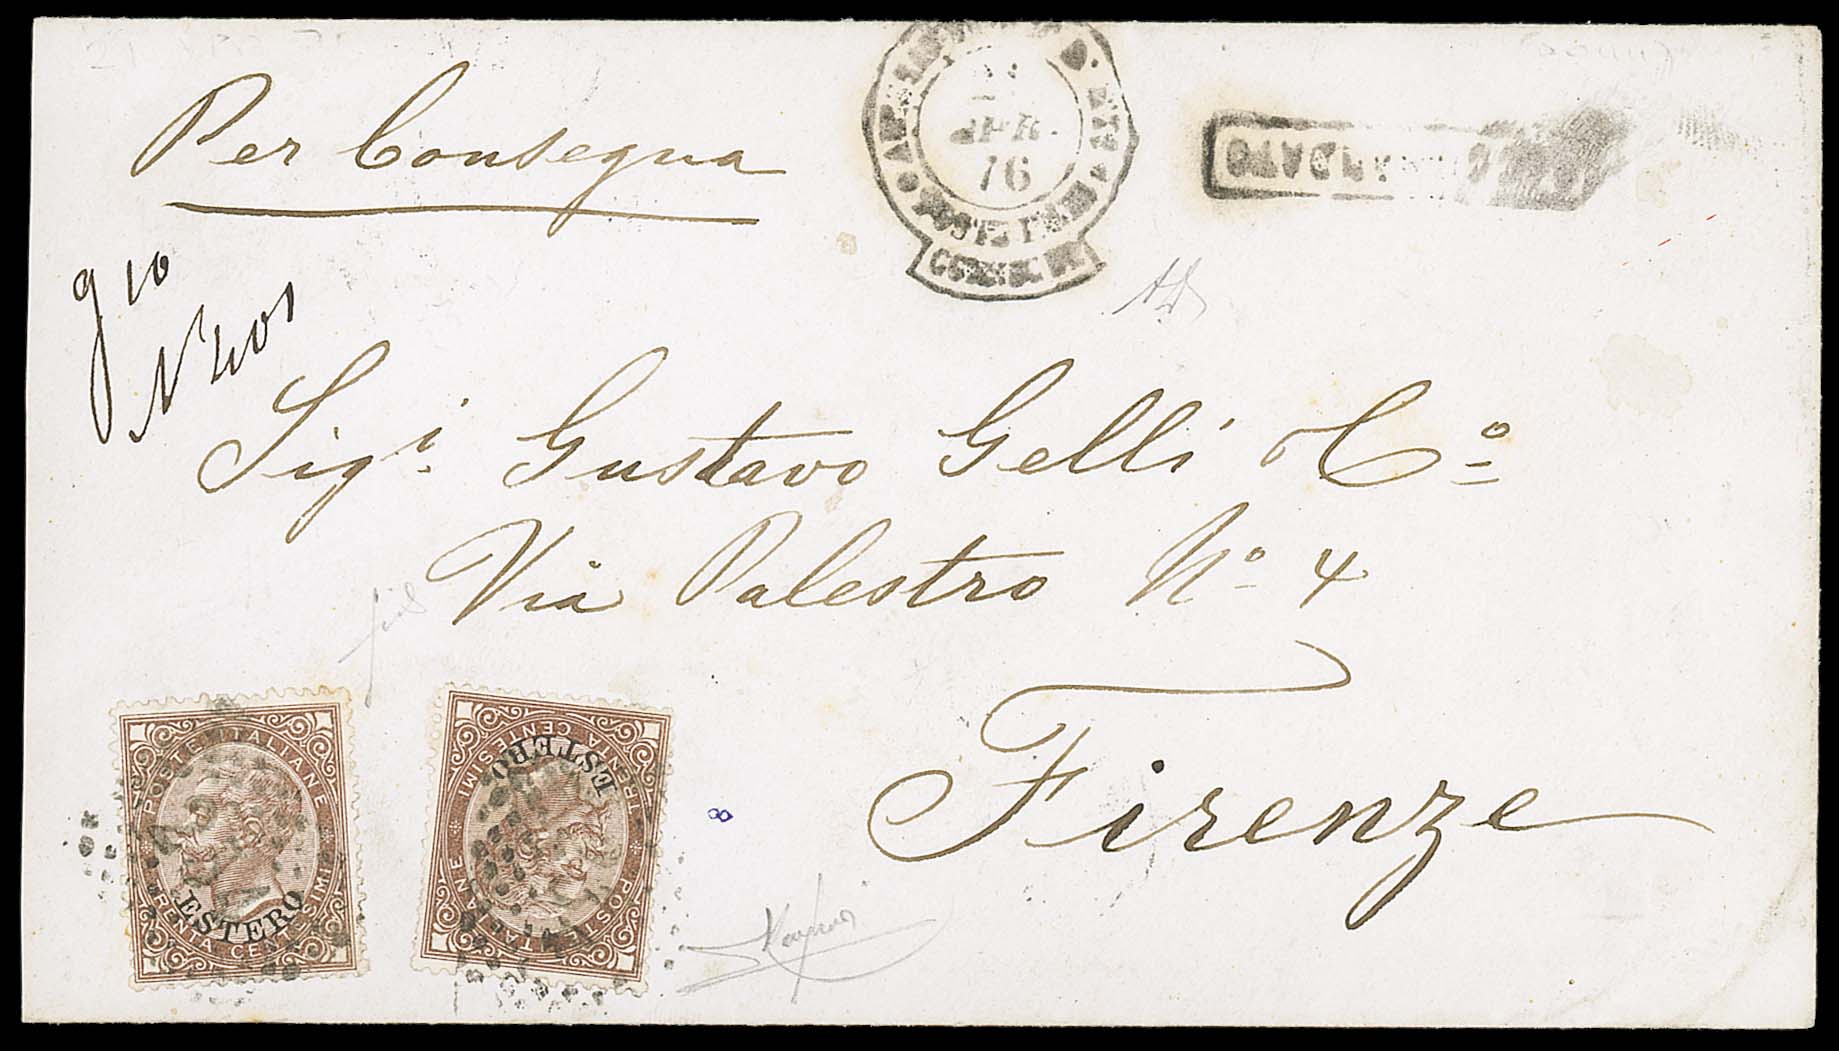 Per Consegna
APR
76
g 10
N 401
Sig.i Gustavo Gelli & C.o
Via Palestro N.o 4
Firenze
POSTE ITALIANE
ESTERO
TRENTA CENTESIMI
POSTE ITALIANE
ESTERO
TRENTA CENTESIMI
8